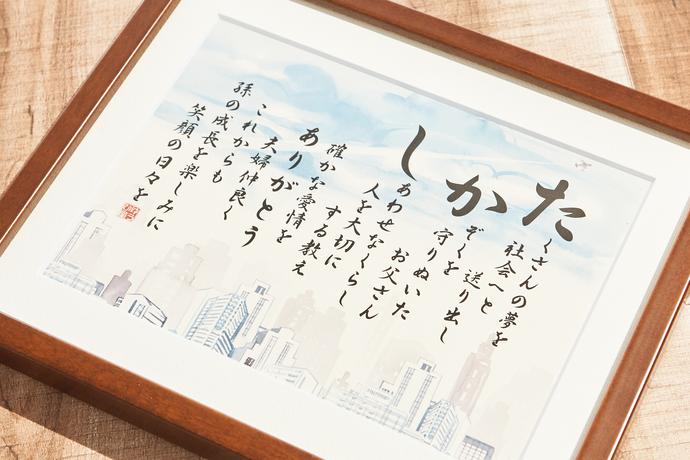 たくさんの夢を
社会へと
送り出し
かぞくを
守りぬいた
お父さん
しあわせなくらし
人を大切に
する教え
確かな愛情を
ありがとう
夫婦仲良く
これからも
孫の成長を楽しみに
笑顔の日々を